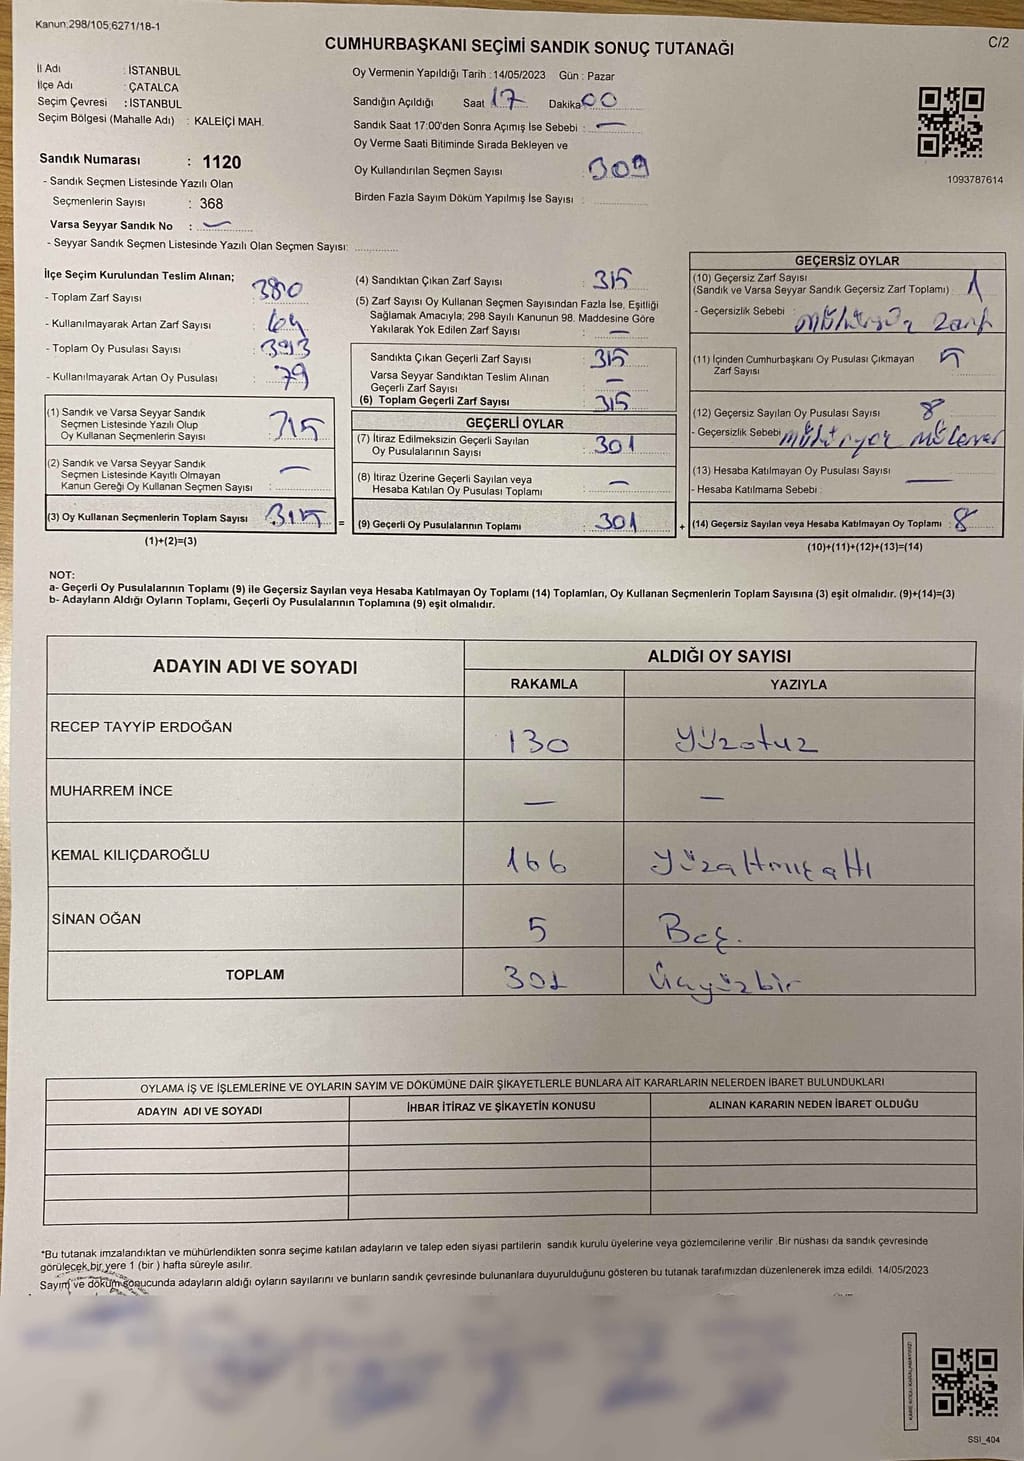 Kanun:298/105;6271/18-1
CUMHURBAŞKANI SEÇİMİ SANDIK SONUÇ TUTANAĞI
C/2
İl Adı : İSTANBUL
İlçe Adı : ÇATALCA
Seçim Çevresi : İSTANBUL
Seçim Bölgesi (Mahalle Adı) : KALEİÇİ MAH.
Sandık Numarası : 1120
- Sandık Seçmen Listesinde Yazılı Olan
Seçmenlerin Sayısı : 368
Varsa Seyyar Sandık No : —
- Seyyar Sandık Seçmen Listesinde Yazılı Olan Seçmen Sayısı:
Oy Vermenin Yapıldığı Tarih :14/05/2023 Gün : Pazar
Sandığın Açıldığı Saat 17 Dakika 00
Sandık Saat 17:00'den Sonra Açımış İse Sebebi : —
Oy Verme Saati Bitiminde Sırada Bekleyen ve
Oy Kullandırılan Seçmen Sayısı : 309
Birden Fazla Sayım Döküm Yapılmış İse Sayısı :
1093787614
İlçe Seçim Kurulundan Teslim Alınan;
- Toplam Zarf Sayısı : 380
- Kullanılmayarak Artan Zarf Sayısı : 64
- Toplam Oy Pusulası Sayısı :
- Kullanılmayarak Artan Oy Pusulası : 79
(1) Sandık ve Varsa Seyyar Sandık
Seçmen Listesinde Yazılı Olup
Oy Kullanan Seçmenlerin Sayısı : 315
(2) Sandık ve Varsa Seyyar Sandık
Seçmen Listesinde Kayıtlı Olmayan
Kanun Gereği Oy Kullanan Seçmen Sayısı : —
(3) Oy Kullanan Seçmenlerin Toplam Sayısı : 315
(1)+(2)=(3)
=
(4) Sandıktan Çıkan Zarf Sayısı : 315
(5) Zarf Sayısı Oy Kullanan Seçmen Sayısından Fazla İse, Eşitliği
Sağlamak Amacıyla; 298 Sayılı Kanunun 98. Maddesine Göre
Yakılarak Yok Edilen Zarf Sayısı : —
Sandıkta Çıkan Geçerli Zarf Sayısı : 315
Varsa Seyyar Sandıktan Teslim Alınan
Geçerli Zarf Sayısı : —
(6) Toplam Geçerli Zarf Sayısı : 315
GEÇERLİ OYLAR
(7) İtiraz Edilmeksizin Geçerli Sayılan
Oy Pusulalarının Sayısı : 301
(8) İtiraz Üzerine Geçerli Sayılan veya
Hesaba Katılan Oy Pusulası Toplamı : —
(9) Geçerli Oy Pusulalarının Toplamı : 301
+
GEÇERSİZ OYLAR
(10) Geçersiz Zarf Sayısı
(Sandık ve Varsa Seyyar Sandık Geçersiz Zarf Toplamı) : 1
- Geçersizlik Sebebi : Mühürsüz Zarf
(11) İçinden Cumhurbaşkanı Oy Pusulası Çıkmayan
Zarf Sayısı : 5
(12) Geçersiz Sayılan Oy Pusulası Sayısı : 8
- Geçersizlik Sebebi
(13) Hesaba Katılmayan Oy Pusulası Sayısı : —
- Hesaba Katılmama Sebebi :
(14) Geçersiz Sayılan veya Hesaba Katılmayan Oy Toplamı : 8
(10)+(11)+(12)+(13)=(14)
NOT:
a- Geçerli Oy Pusulalarının Toplamı (9) ile Geçersiz Sayılan veya Hesaba Katılmayan Oy Toplamı (14) Toplamları, Oy Kullanan Seçmenlerin Toplam Sayısına (3) eşit olmalıdır. (9)+(14)=(3)
b- Adayların Aldığı Oyların Toplamı, Geçerli Oy Pusulalarının Toplamına (9) eşit olmalıdır.
ADAYIN ADI VE SOYADI
ALDIĞI OY SAYISI
RAKAMLA YAZIYLA
RECEP TAYYİP ERDOĞAN 130 Yüzotuz
MUHARREM İNCE — —
KEMAL KILIÇDAROĞLU 166 Yüzaltmışaltı
SİNAN OĞAN 5 Beş.
TOPLAM 301 Üçyüzbir
OYLAMA İŞ VE İŞLEMLERİNE VE OYLARIN SAYIM VE DÖKÜMÜNE DAİR ŞİKAYETLERLE BUNLARA AİT KARARLARIN NELERDEN İBARET BULUNDUKLARI
ADAYIN ADI VE SOYADI İHBAR İTİRAZ VE ŞİKAYETİN KONUSU ALINAN KARARIN NEDEN İBARET OLDUĞU
*Bu tutanak imzalandıktan ve mühürlendikten sonra seçime katılan adayların ve talep eden siyasi partilerin sandık kurulu üyelerine veya gözlemcilerine verilir .Bir nüshası da sandık çevresinde
görülecek bir yere 1 (bir ) hafta süreyle asılır.
Sayım ve döküm sonucunda adayların aldığı oyların sayılarını ve bunların sandık çevresinde bulunanlara duyurulduğunu gösteren bu tutanak tarafımızdan düzenlenerek imza edildi. 14/05/2023
SSI_404